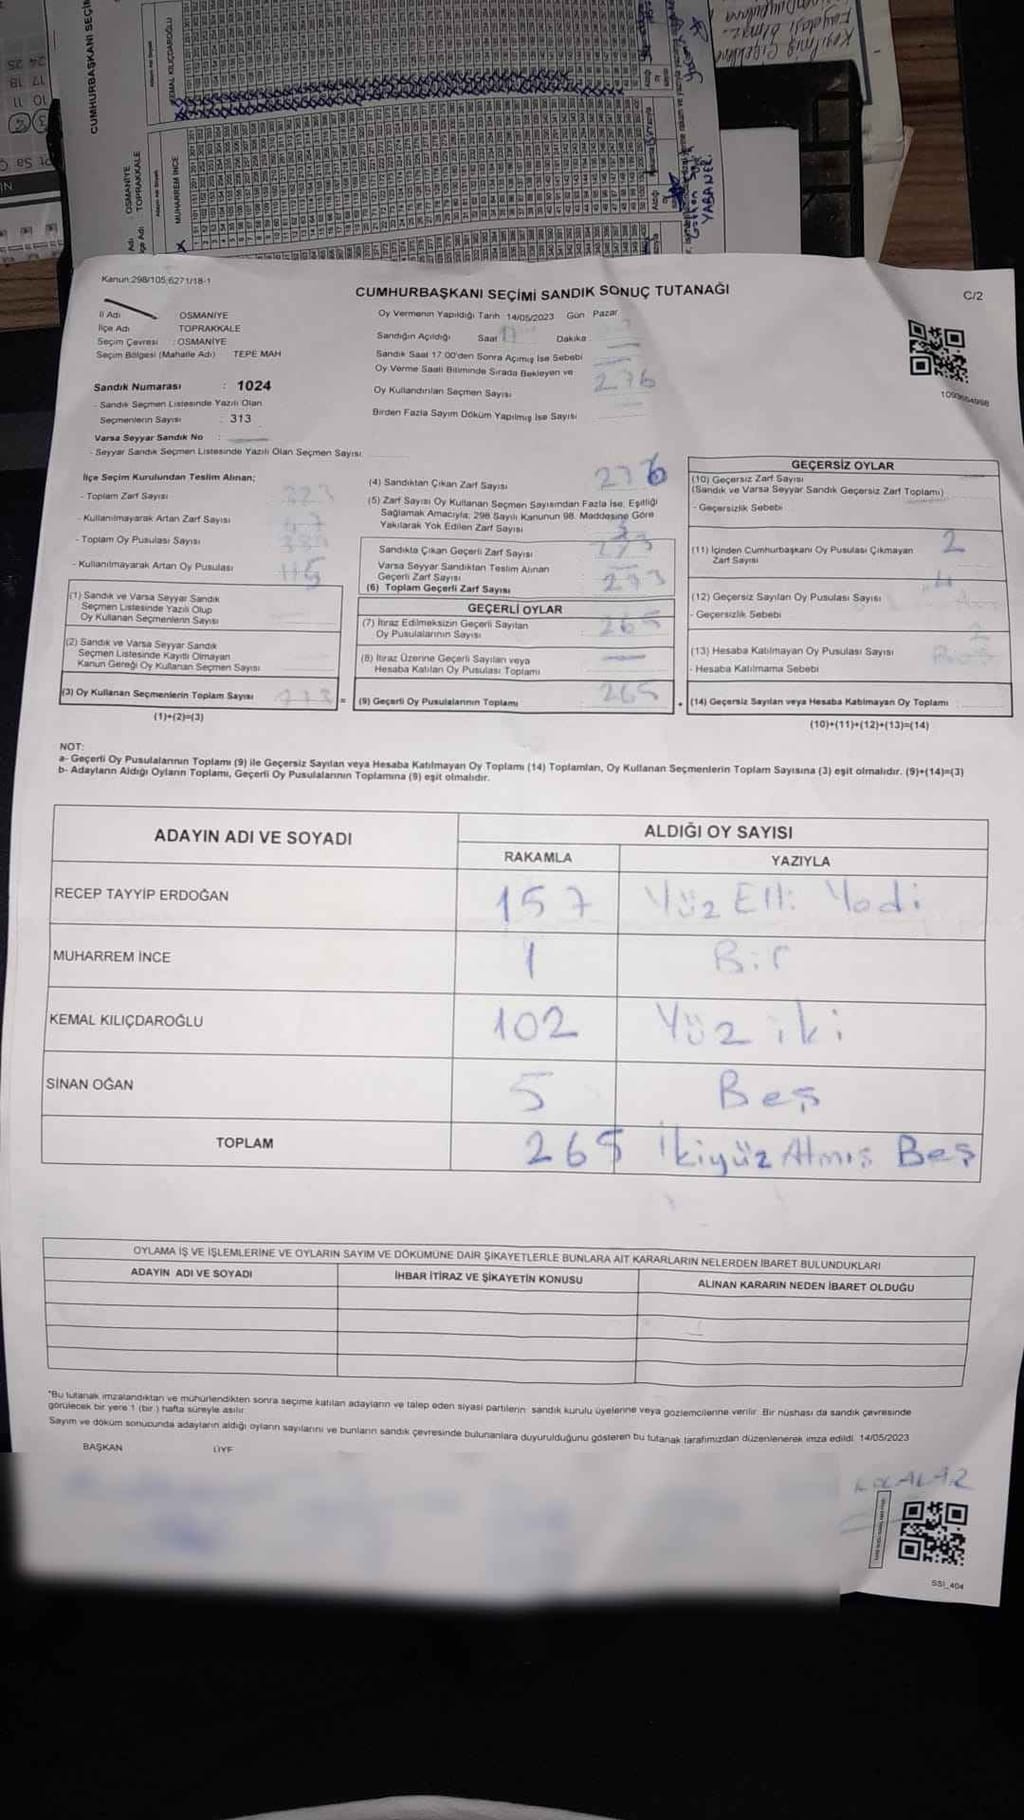 CUMHURBAŞKANI SEÇİM
OSMANİYE
TOPRAKKALE
KEMAL KILIÇDAROĞLU
MUHARREM İNCE
Kanun:298/105,6271/18-1
CUMHURBAŞKANI SEÇİMİ SANDIK SONUÇ TUTANAĞI
C/2
İl Adı : OSMANİYE
İlçe Adı TOPRAKKALE
Seçim Çevresi : OSMANİYE
Seçim Bölgesi (Mahalle Adı) TEPE MAH
Oy Vermenin Yapıldığı Tarih 14/05/2023 Gün Pazar
Sandığın Açıldığı Saat 17 Dakika
Sandık Saat 17:00'den Sonra Açılmış İse Sebebi
Oy Verme Saati Bitiminde Sırada Bekleyen ve
Oy Kullandırılan Seçmen Sayısı 276
Birden Fazla Sayım Döküm Yapılmış İse Sayısı
Sandık Numarası : 1024
- Sandık Seçmen Listesinde Yazılı Olan
Seçmenlerin Sayısı : 313
Varsa Seyyar Sandık No :
- Seyyar Sandık Seçmen Listesinde Yazılı Olan Seçmen Sayısı:
İlçe Seçim Kurulundan Teslim Alınan;
- Toplam Zarf Sayısı
- Kullanılmayarak Artan Zarf Sayısı
- Toplam Oy Pusulası Sayısı
- Kullanılmayarak Artan Oy Pusulası 115
(1) Sandık ve Varsa Seyyar Sandık
Seçmen Listesinde Yazılı Olup
Oy Kullanan Seçmenlerin Sayısı
(2) Sandık ve Varsa Seyyar Sandık
Seçmen Listesinde Kayıtlı Olmayan
Kanun Gereği Oy Kullanan Seçmen Sayısı
(3) Oy Kullanan Seçmenlerin Toplam Sayısı
(1)+(2)=(3)
(4) Sandıktan Çıkan Zarf Sayısı 276
(5) Zarf Sayısı Oy Kullanan Seçmen Sayısından Fazla İse, Eşitliği
Sağlamak Amacıyla, 298 Sayılı Kanunun 98. Maddesine Göre
Yakılarak Yok Edilen Zarf Sayısı 3
Sandıkta Çıkan Geçerli Zarf Sayısı 273
Varsa Seyyar Sandıktan Teslim Alınan
Geçerli Zarf Sayısı
(6) Toplam Geçerli Zarf Sayısı 273
GEÇERLİ OYLAR
(7) İtiraz Edilmeksizin Geçerli Sayılan
Oy Pusulalarının Sayısı 265
(8) İtiraz Üzerine Geçerli Sayılan veya
Hesaba Katılan Oy Pusulası Toplamı
= (9) Geçerli Oy Pusulalarının Toplamı 265
GEÇERSİZ OYLAR
(10) Geçersiz Zarf Sayısı
(Sandık ve Varsa Seyyar Sandık Geçersiz Zarf Toplamı)
- Geçersizlik Sebebi
(11) İçinden Cumhurbaşkanı Oy Pusulası Çıkmayan
Zarf Sayısı 2
(12) Geçersiz Sayılan Oy Pusulası Sayısı 4
- Geçersizlik Sebebi
(13) Hesaba Katılmayan Oy Pusulası Sayısı 2
- Hesaba Katılmama Sebebi
+ (14) Geçersiz Sayılan veya Hesaba Katılmayan Oy Toplamı
(10)+(11)+(12)+(13)=(14)
NOT:
a- Geçerli Oy Pusulalarının Toplamı (9) ile Geçersiz Sayılan veya Hesaba Katılmayan Oy Toplamı (14) Toplamları, Oy Kullanan Seçmenlerin Toplam Sayısına (3) eşit olmalıdır. (9)+(14)=(3)
b- Adayların Aldığı Oyların Toplamı, Geçerli Oy Pusulalarının Toplamına (9) eşit olmalıdır.
ADAYIN ADI VE SOYADI ALDIĞI OY SAYISI
RAKAMLA YAZIYLA
RECEP TAYYİP ERDOĞAN 157 Yüz Elli Yedi
MUHARREM İNCE 1 Bir
KEMAL KILIÇDAROĞLU 102 Yüz iki
SİNAN OĞAN 5 Beş
TOPLAM 265 İkiyüz Atmış Beş
OYLAMA İŞ VE İŞLEMLERİNE VE OYLARIN SAYIM VE DÖKÜMÜNE DAİR ŞİKAYETLERLE BUNLARA AİT KARARLARIN NELERDEN İBARET BULUNDUKLARI
ADAYIN ADI VE SOYADI İHBAR İTİRAZ VE ŞİKAYETİN KONUSU ALINAN KARARIN NEDEN İBARET OLDUĞU
*Bu tutanak imzalandıktan ve mühürlendikten sonra seçime katılan adayların ve talep eden siyasi partilerin sandık kurulu üyelerine veya gözlemcilerine verilir. Bir nüshası da sandık çevresinde
görülecek bir yere 1 (bir) hafta süreyle asılır.
Sayım ve döküm sonucunda adayların aldığı oyların sayılarını ve bunların sandık çevresinde bulunanlara duyurulduğunu gösteren bu tutanak tarafımızdan düzenlenerek imza edildi. 14/05/2023
BAŞKAN ÜYE
SSI_404